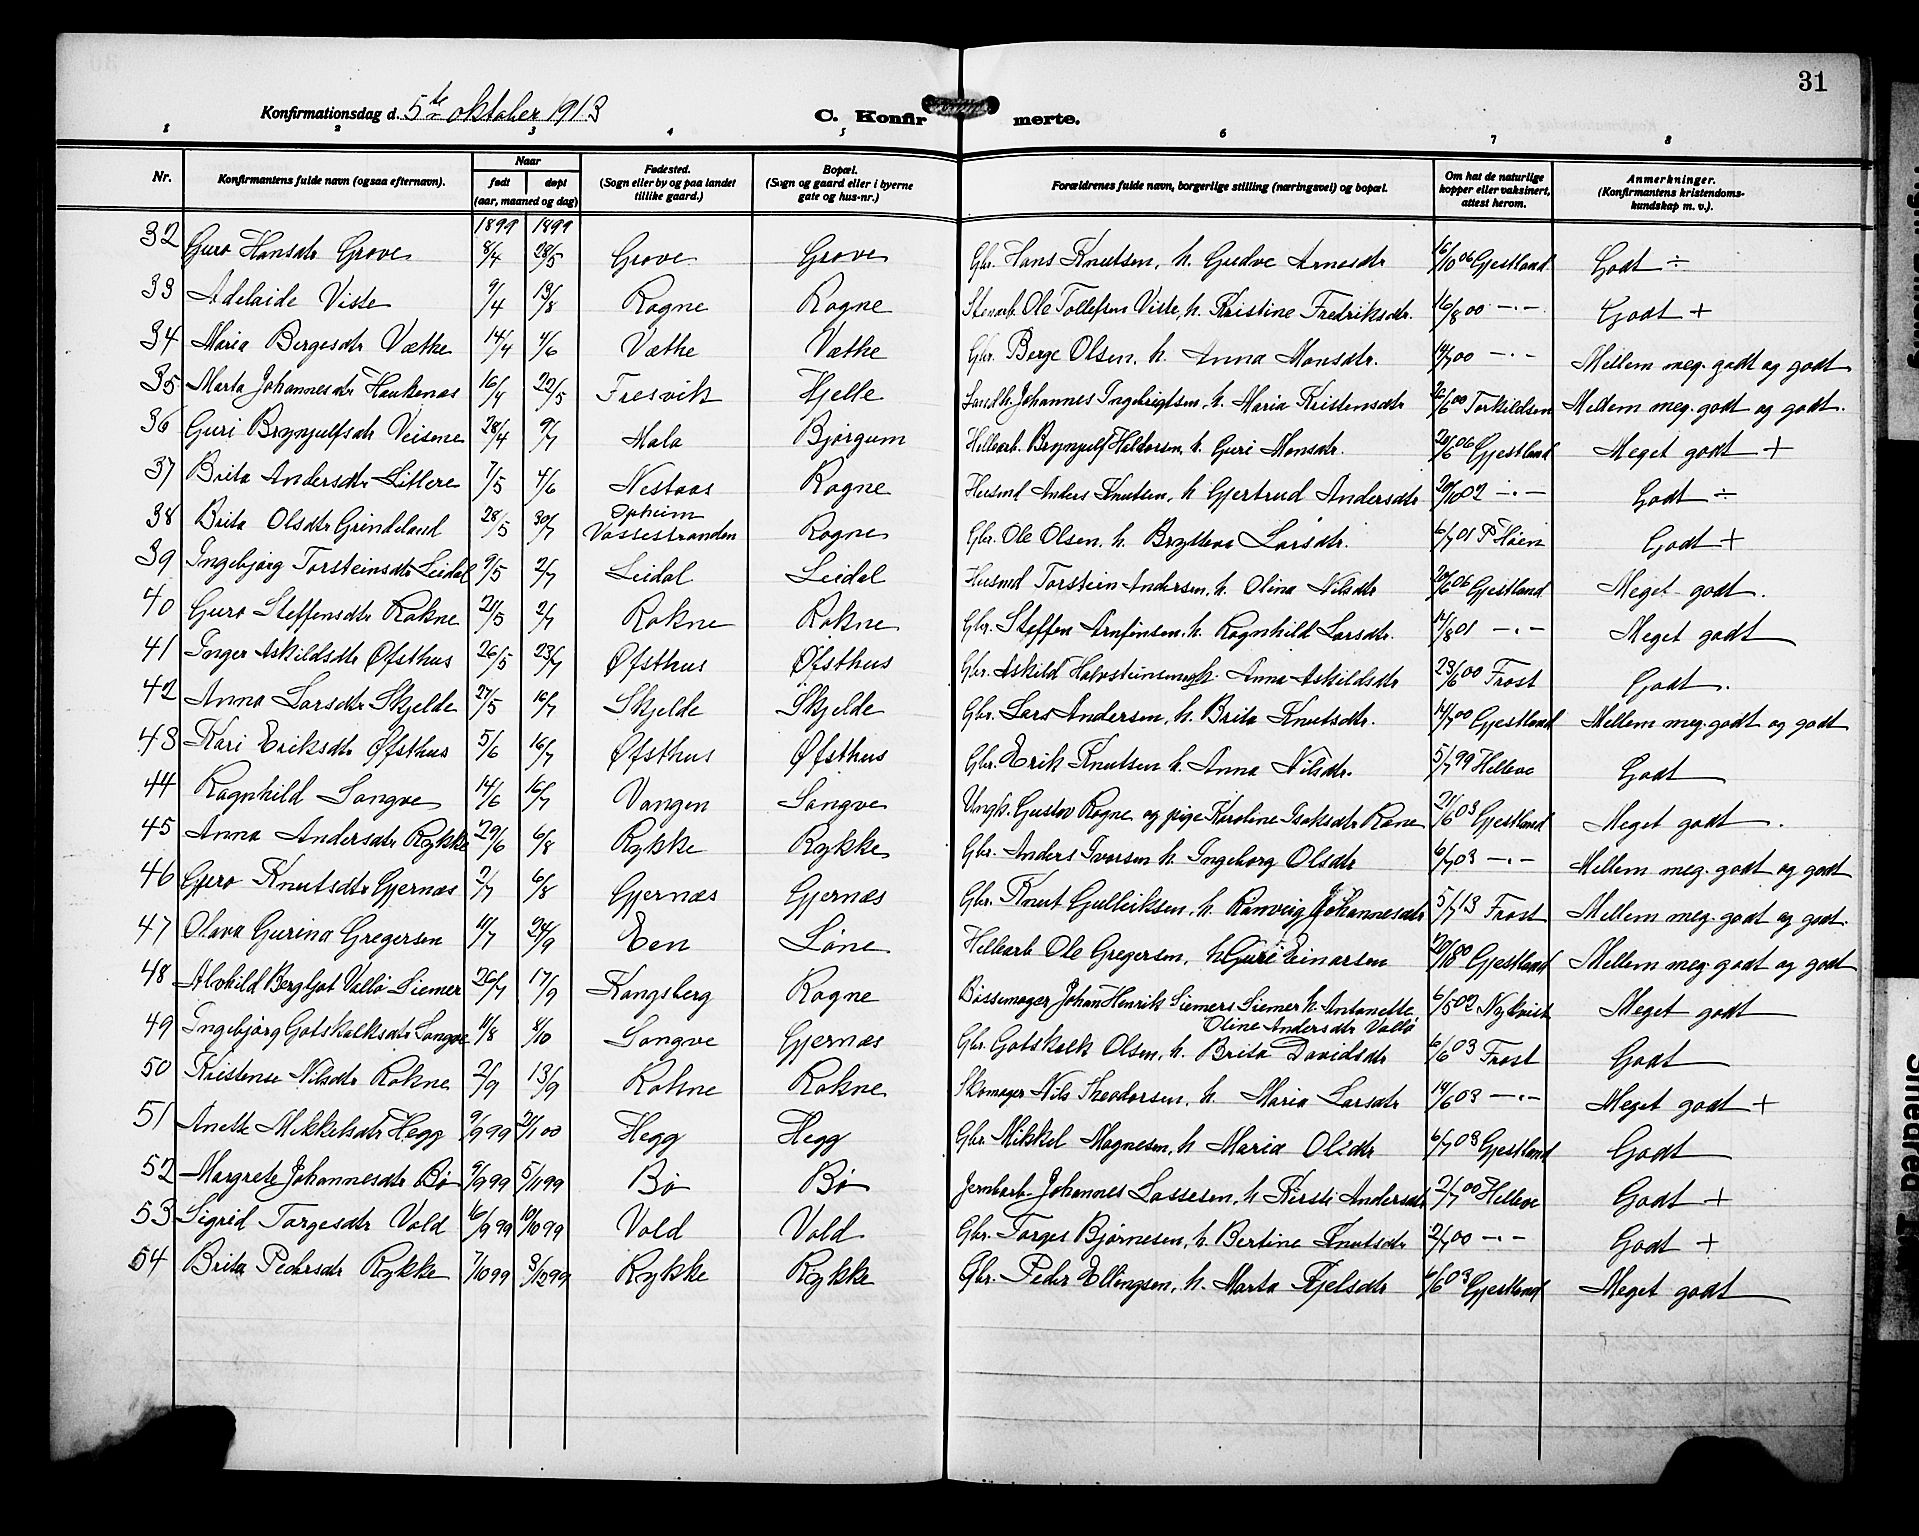 31
Konfirmationsdag d. 5te oktober 1913 C. Konfirmerte.
1 2 3 4 5 6 7 8
Nr. Konfirmantens fulde navn (ogsaa efternavn). Naar født døpt (aar, maaned og dag) Fødested. (Sogn eller by og paa landet tillike gaard.) Bopæl. (Sogn og gaard eller i byerne gate og hus-nr.) Forældrenes fulde navn, borgerlige stilling (næringsvei) og bopæl. Om hat de naturlige kopper eller vaksinert, attest herom. Anmerkninger. (Konfirmantens kristendomskundskap m. v.).
1899 1899
32 Guro Hansdtr Grove 8/4 28/5 Grove Grove Gbr. Hans Knutsen, h. Gudve Arnesdtr 16/10 06 Gjestland Godt ÷
33 Adelaide Viste 9/4 13/8 Rogne Rogne Stenarb. Ole Tollefsen Viste, h. Kristine Fredriksdtr. 16/8 00 -"- Godt +
34 Maria Bergesdtr Vætke 14/4 4/6 Vætke Vætke Gbr. Berge Olsen, h. Anna Monsdtr. 14/7 00 -"- Mellem meg. godt og godt
35 Marta Johannesdtr Haukenæs 16/4 22/5 Fresvik Hjelle Johannes Ingebrigtsen, h. Maria Kristensdtr 00 Torkildsen Mellem meg. godt og godt.
36 Guri Brynjulfsdtr Veisene 28/4 9/7 Mala Bjørgum Hellearb. Brynjulf Haldorsen, h. Guri Monsdtr. 20/6 06 Gjestland Meget godt +
37 Brita Andersdtr Litlere 7/5 4/6 Nestaas Rogne Husmd Anders Knutsen, h. Gjertrud Andersdtr 20/10 02 -"- Godt ÷
38 Brita Olsdtr Grindeland 28/5 30/7 Opheim Vossestranden Rogne Gbr. Ole Olsen, h. Brytteva Larsdtr. 6/7 01 P. Høien Godt +
39 Ingebjørg Torsteinsdtr Leidal 9/5 2/7 Leidal Leidal Husmd Torstein Andersen, h. Olina Nilsdtr 20/6 06 Gjestland Meget godt.
40 Guro Steffensdtr Rokne 21/5 2/7 Rokne Rokne Gbr. Steffen Arnfinsen, h. Ragnhild Larsdtr. 14/8 01 -"- Meget godt
41 Inger Askildsdtr Øfsthus 26/5 23/7 Øfsthus Øfsthus Gbr. Askild h. Anna Askildsdtr 23/6 00 Frost Godt.
42 Anna Larsdtr Skjelde 27/5 16/7 Skjelde Skjelde Gbr. Lars Andersen, h. Brita Knutsdtr. 14/7 00 Gjestland Mellem meg. godt og godt
43 Kari Eriksdtr Øfsthus 5/6 16/7 Øfsthus Øfsthus Gbr. Erik Knutsen h. Anna Nilsdtr. 5/7 99 Helleve Godt
44 Ragnhild Songve 14/6 16/7 Vangen Songve Ungk. Gustav Rogne og pige Karoline Isaksdtr Røne 21/6 03 Gjestland Meget godt.
45 Anna Andersdtr Rykke 29/6 6/8 Rykke Rykke Gbr. Anders Ivarsen h. Ingeborg Olsdtr 6/7 03 -"- Mellem meg. godt og godt
46 Gjero Knutsdtr Gjernæs 2/7 6/8 Gjernæs Gjernæs Gbr. Knut Gulleiksen, h. Ranveig Johannesdtr 5/7 13 Frost Mellem meg. godt og godt.
47 Olava Gurina Gregersen 11/7 24/9 Een Løne Hellearb Ole Gregersen, h. Guri Einarsen 00 Gjestland Mellem meg. godt og godt
48 Alvhild Bergljot Vallø Siemer 26/7 17/9 Kongsberg Rogne Bøssemager Johan Henrik Siemers Siemer h. Antonette Oline Andersdtr Vallø 6/5 02 Nykvist Meget godt
49 Ingebjørg Gotskalksdtr Songve 11/8 4/10 Songve Gjernæs Gbr. Gotskalk Olsen, h. Brita Davidsdtr 6/6 03 Frost Godt
50 Kristense Nilsdtr Rokne 2/9 13/9 Rokne Rokne Skomager Nils Theodorsen, h. Maria Larsdtr 14/6 03 -"- Meget godt +
51 Anette Mikkelsdtr Hegg 9/9 99 21/1 00 Hegg Hegg Gbr. Mikkel Magnesen, h. Maria Olsdtr 6/7 03 Gjestland Godt
52 Margrete Johannesdtr Bø 9/9 99 5/11 99 Bø Bø Jernbarb. Johannes Lassesen, h. Kirsti Andersdtr 2/7 00 Helleve Godt +
53 Sigrid Torgesdtr Vold 16/9 99 10/10 99 Vold Vold Gbr. Torges Bjørnesen, h. Bertine Knutsdtr 2/7 00 -"- Godt +
54 Brita Pedersdtr Rykke 7/10 99 3/12 99 Rykke Rykke Gbr. Peder Ellingsen, h. Marta Kjelsdtr 6/6 03 Gjestland Meget godt